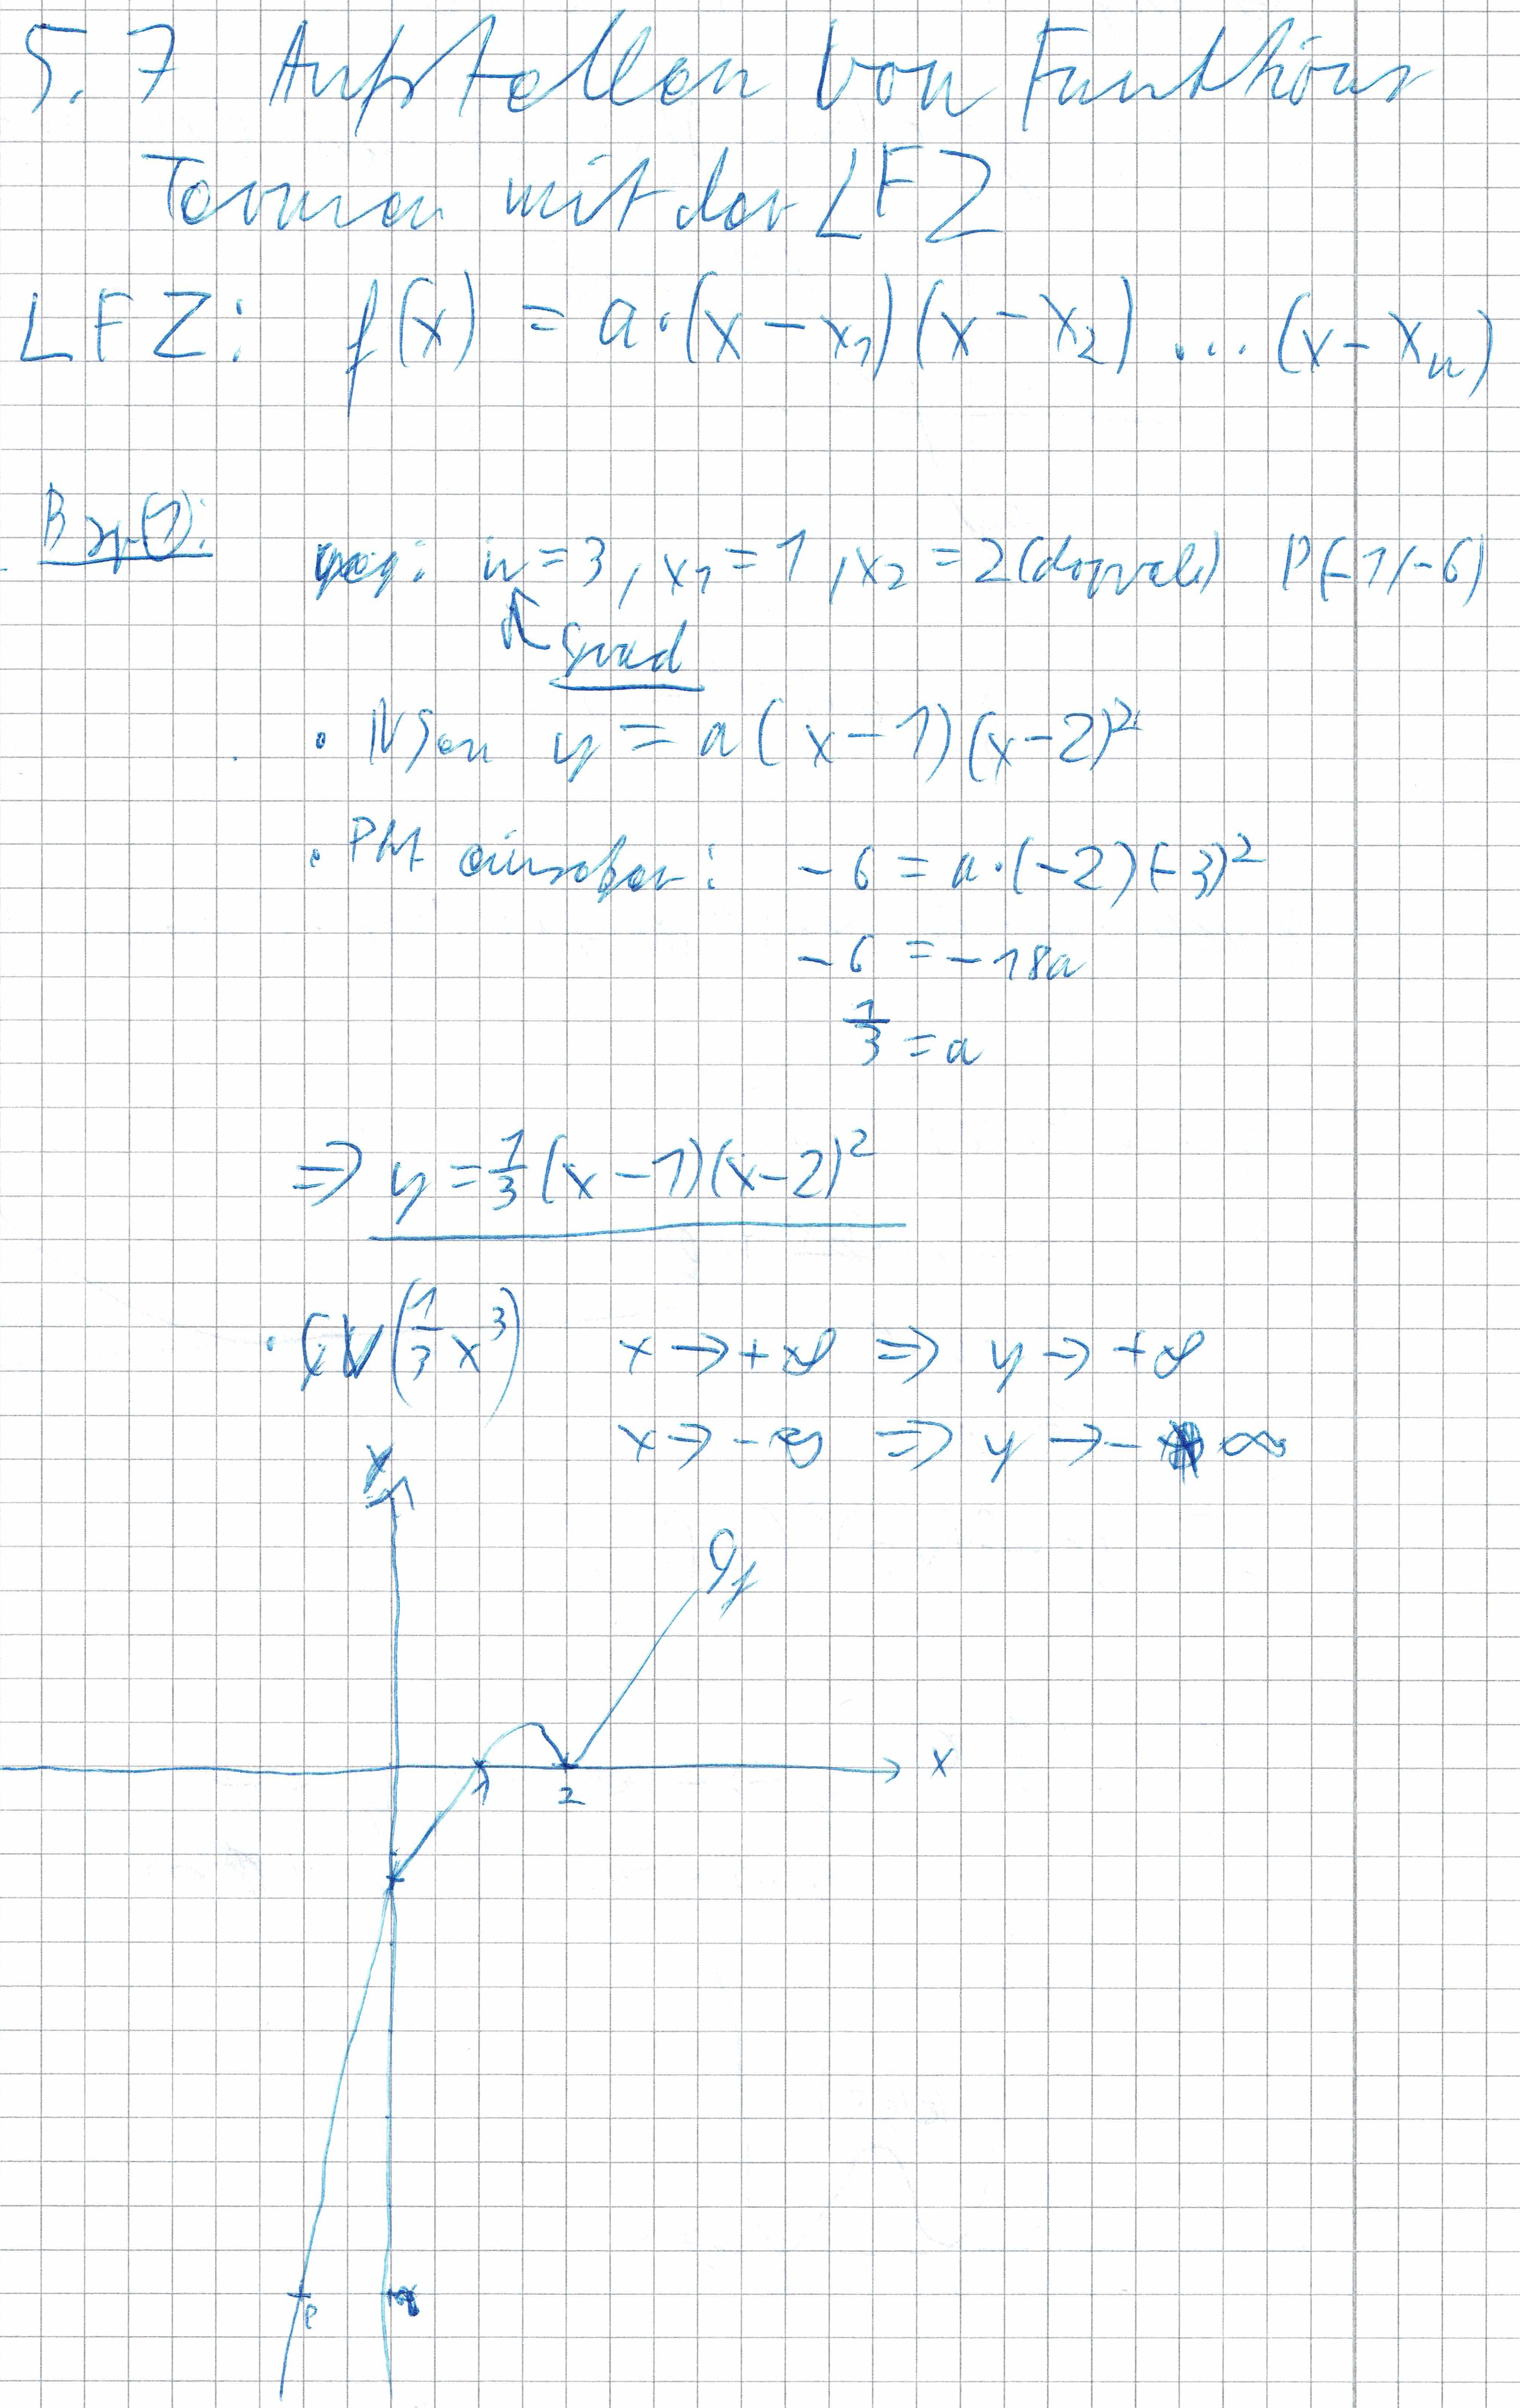 5.7 Aufstellen von Funktions
Termen mit der LFZ
LFZ: f(x) = a·(x-x₁)(x-x₂) ... (x-xₙ)
Bsp(1): geg: n=3, x₁=1, x₂=2(doppelt) P(-1/-6)
↖ Grad
· NSen y = a(x-1)(x-2)²
· Pkt einsetzen: -6 = a·(-2)(-3)²
-6 = -18a
1/3 = a
⇒ y = 1/3(x-1)(x-2)²
· GV(1/3x³) x → +∞ ⇒ y → +∞
x → -∞ ⇒ y → - ∞
y
Gf
x
1 2
P